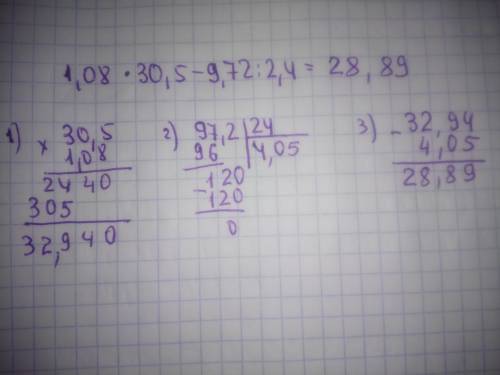 1,08 · 30,5 - 9,72 : 2,4 = 28,89
1)
× 30,5
1,08
2440
305
32,940
2)
97,2 | 24
96 | 4,05
-120
120
0
3)
- 32,94
4,05
28,89